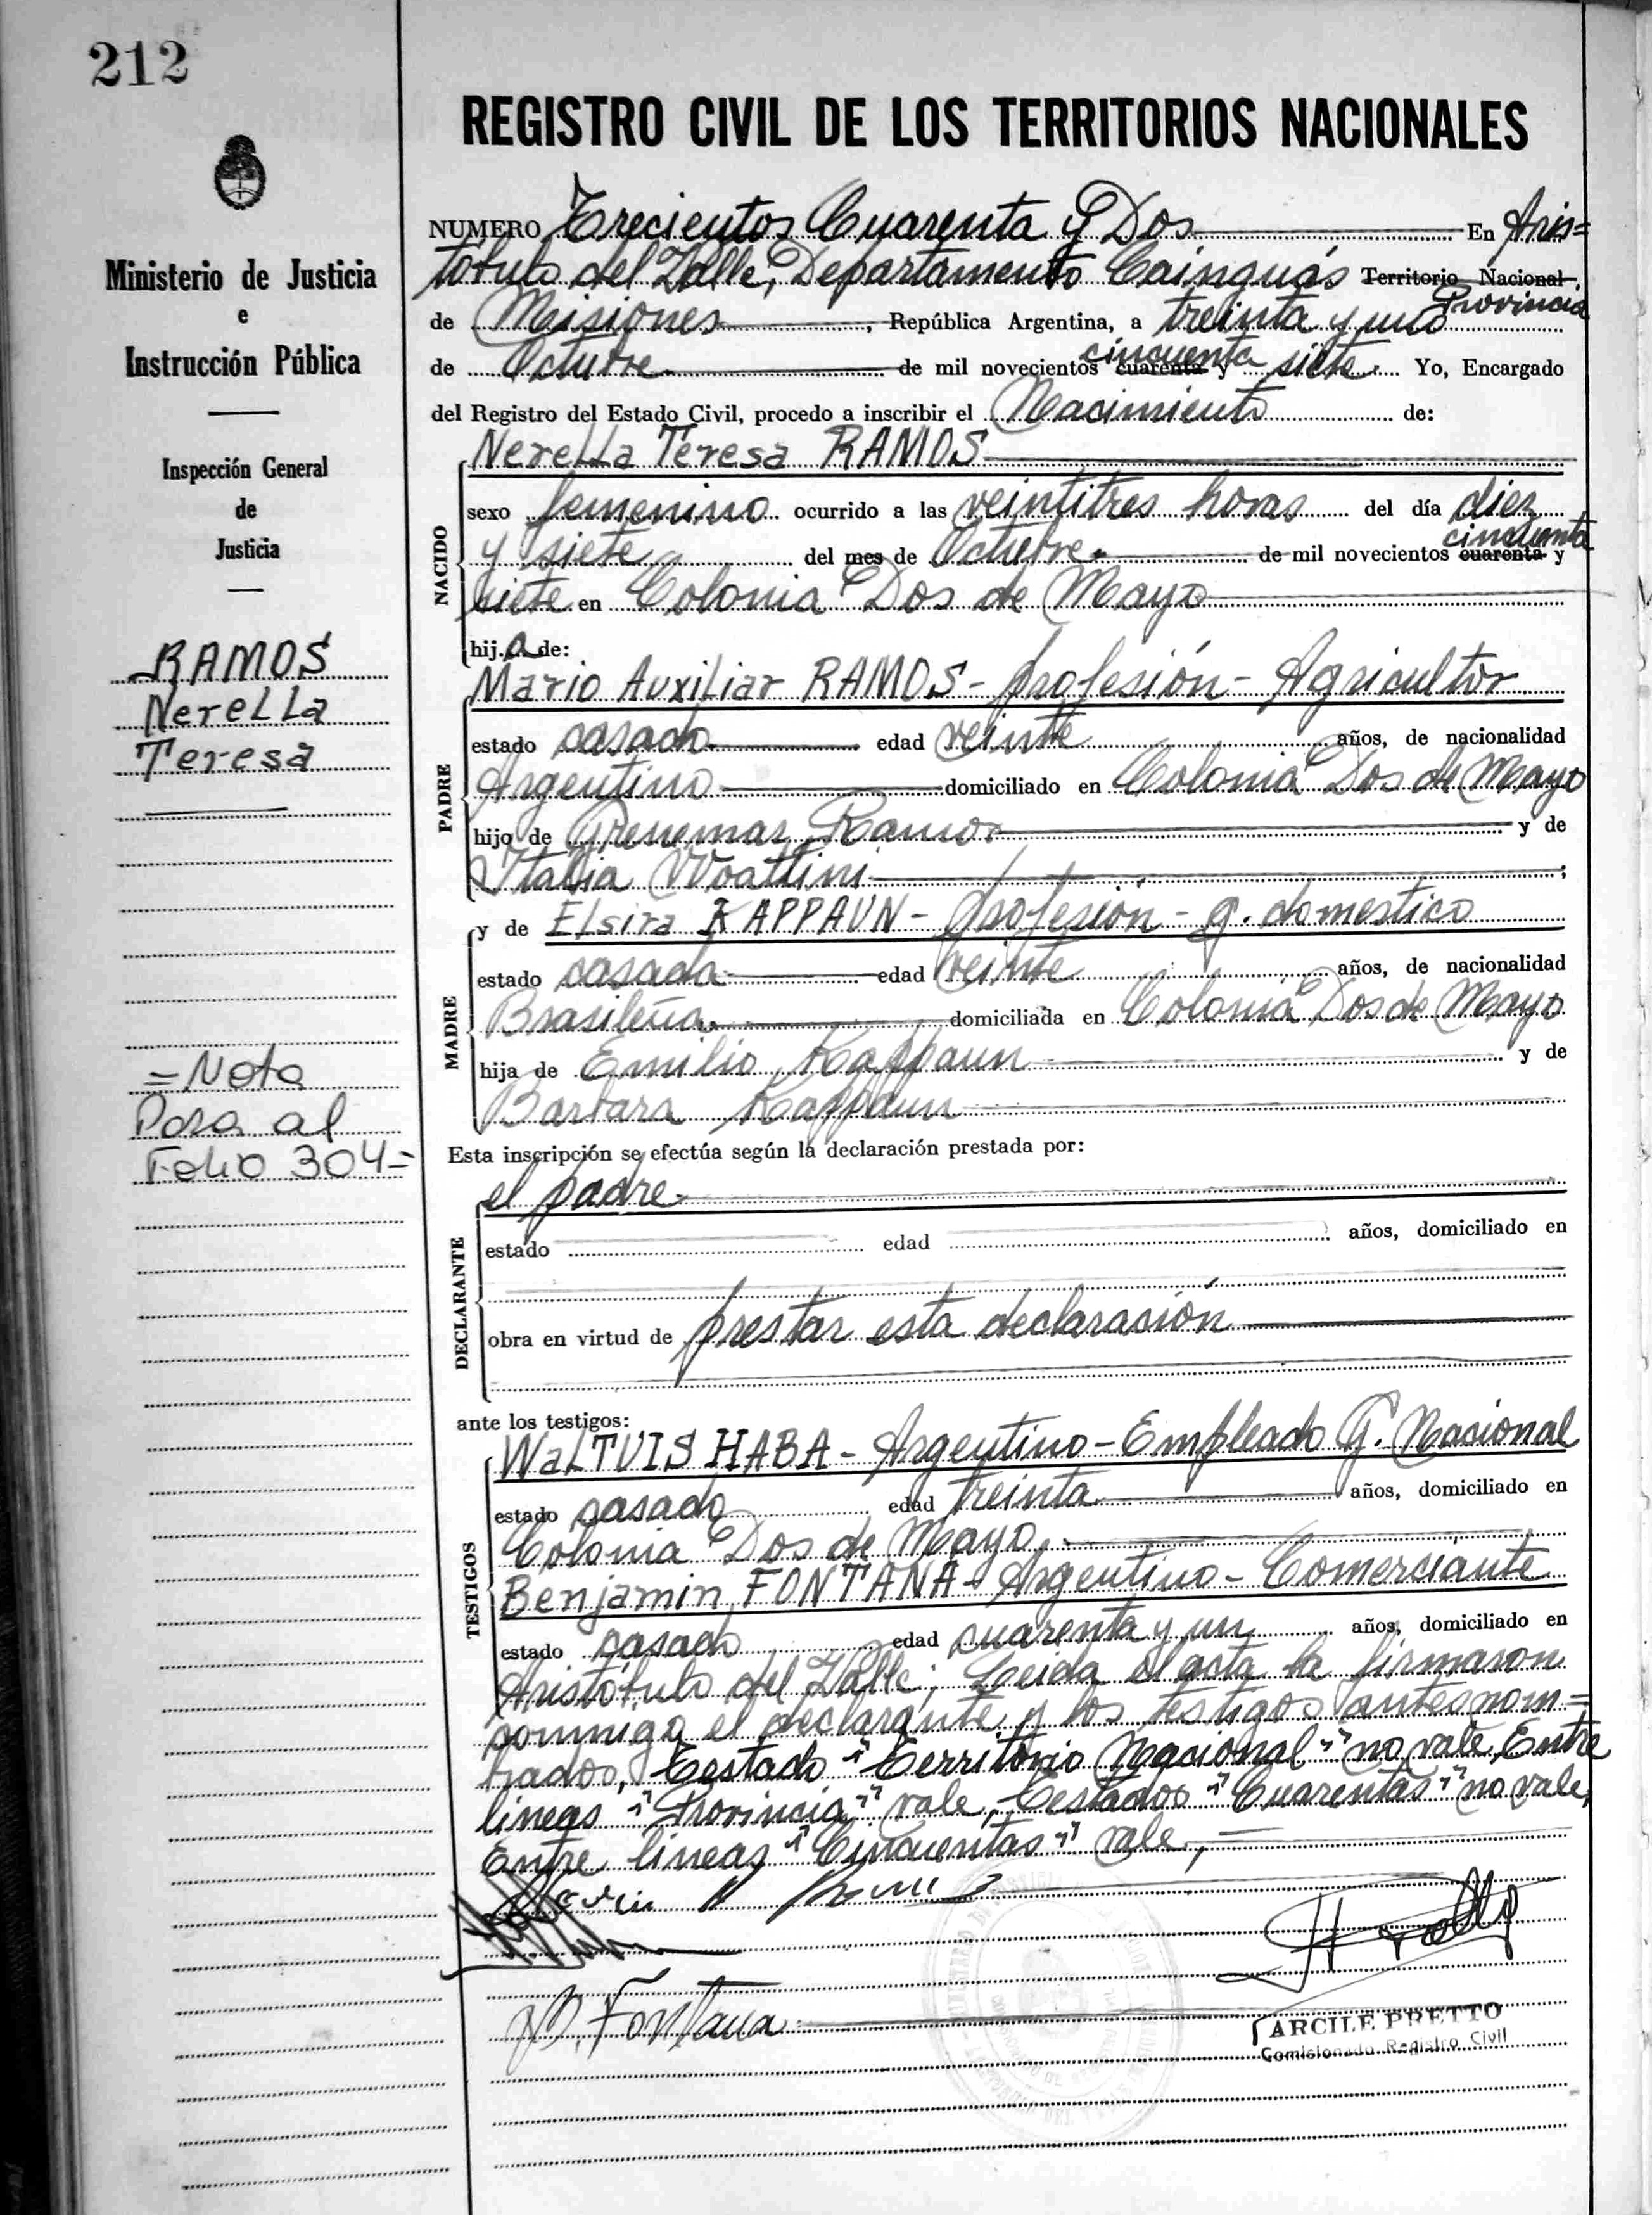 212
Ministerio de Justicia
e
Instrucción Pública
Inspección General
de
Justicia
RAMOS
NereLLa
Teresa
=Nota
Pasa al
Folio 304=
REGISTRO CIVIL DE LOS TERRITORIOS NACIONALES
NUMERO Trecientos Cuarenta y Dos En Aris=
tóbulo del Valle, Departamento Cainguás Territorio Nacional
Provincia
de Misiones, República Argentina, a treinta y uno
de Octubre de mil novecientos cuarenta y cincuenta siete. Yo, Encargado
del Registro del Estado Civil, procedo a inscribir el Nacimiento de:
NereLLa Teresa RAMOS
NACIDO
sexo femenino ocurrido a las veintitres horas del día diez
y siete del mes de Octubre de mil novecientos cuarenta y cincuenta
siete en Colonia Dos de Mayo
hij.a de:
PADRE
Mario AuxiLiar RAMOS- profesión- Agricultor
estado casado edad veinte años, de nacionalidad
Argentino domiciliado en Colonia Dos de Mayo
hijo de Ramos y de
Italia
MADRE
y de ELsira KAPPAUN- profesión- q. doméstico
estado casada edad veinte años, de nacionalidad
Brasileña. domiciliada en Colonia Dos de Mayo
hija de Emilio Kappaun y de
Barbara Kappaun
Esta inscripción se efectúa según la declaración prestada por:
DECLARANTE
el padre-
estado edad años, domiciliado en
obra en virtud de prestar esta declaración
ante los testigos:
TESTIGOS
WaLTUIS HABA- Argentino- Empleado G. Nacional
estado casado edad treinta años, domiciliado en
Colonia Dos de Mayo,
Benjamin FONTANA- Argentino- Comerciante
estado casado edad cuarenta y un años, domiciliado en
Aristóbulo del Valle; Leida el acta la firmaron
conmigo el declarante y los testigos antesnom=
brados, Testado "Territorio Nacional" no vale, Entre
lineas "Provincia" vale, Testados "Cuarentas" no vale,
Entre lineas "Cincuentas" vale,=
B. Fontana
ARCILE PRETTO
Comisionado Registro Civil